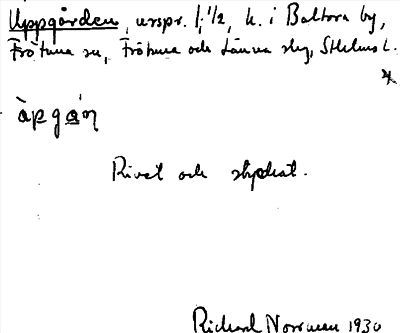 Uppgården, urspr. 1, 1/2, h. i Baltora by,
Frötuna sn, Frötuna och Länna slg, Sthlms l.
àpgán
Rivet och stycket.
Richard Norrman 1930